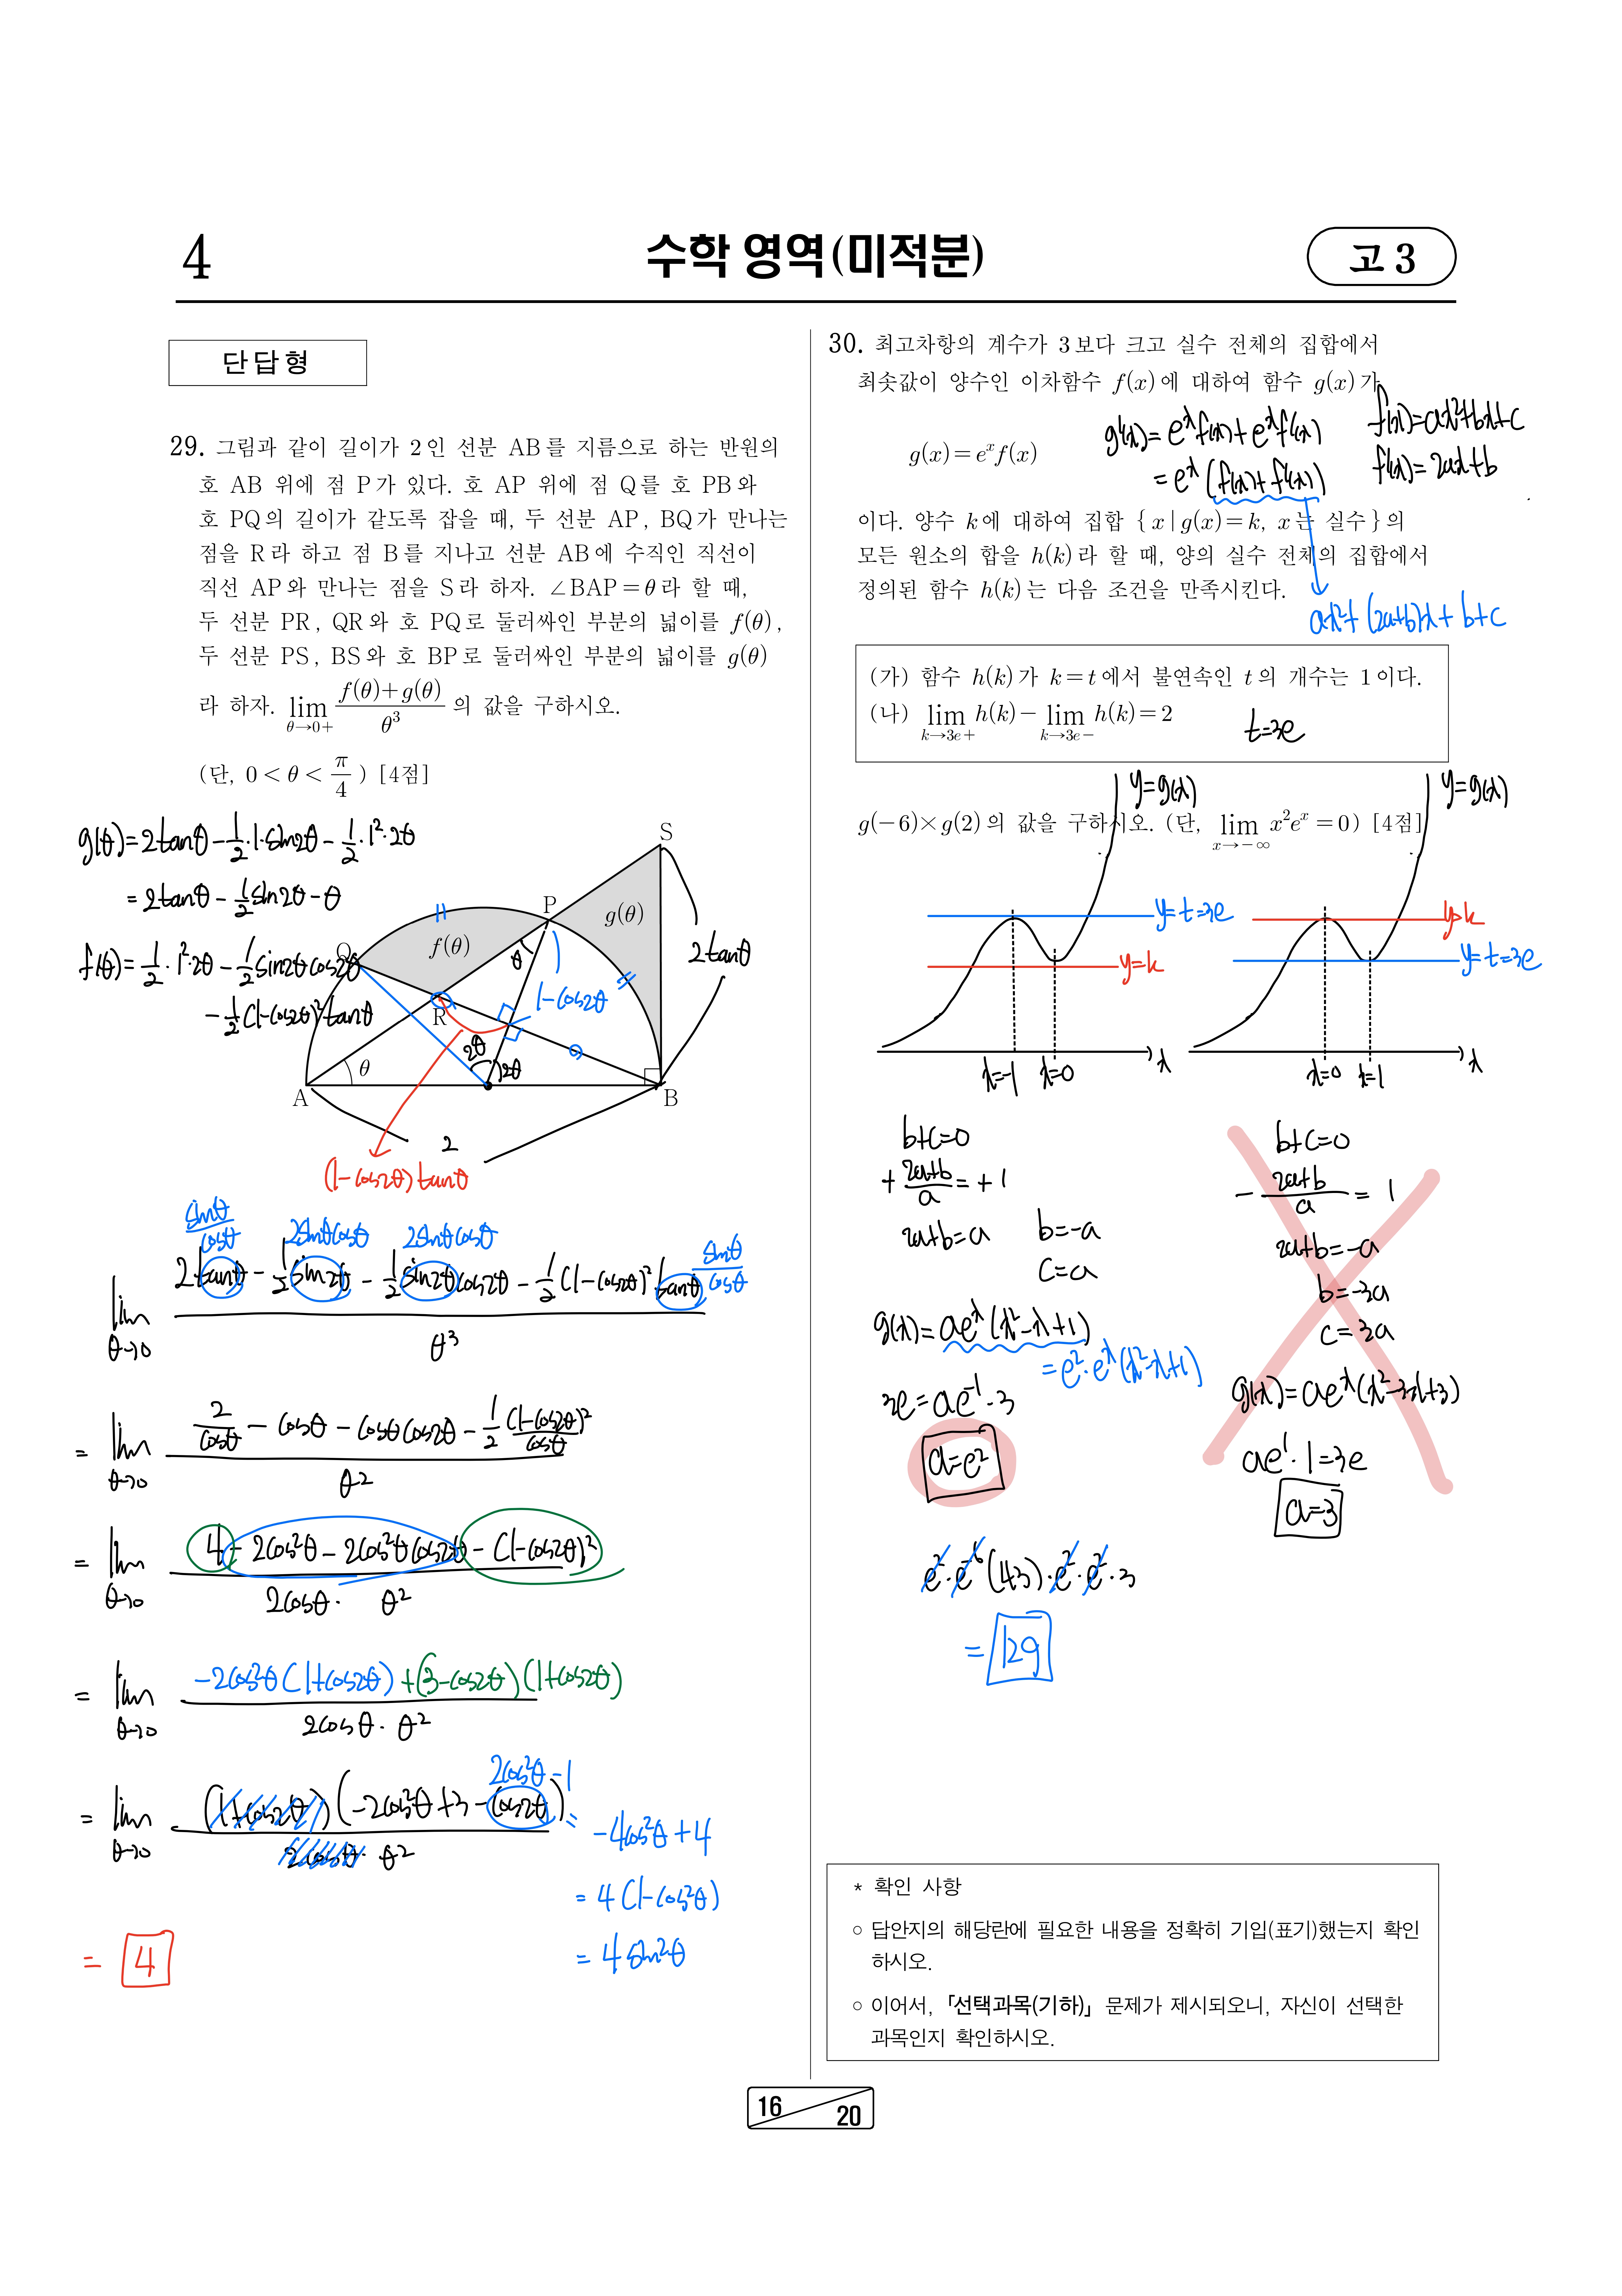 4
수학 영역(미적분)
고 3
단답형
29. 그림과 같이 길이가 2인 선분 AB를 지름으로 하는 반원의
호 AB 위에 점 P가 있다. 호 AP 위에 점 Q를 호 PB와
호 PQ의 길이가 같도록 잡을 때, 두 선분 AP, BQ가 만나는
점을 R라 하고 점 B를 지나고 선분 AB에 수직인 직선이
직선 AP와 만나는 점을 S라 하자. ∠BAP=θ라 할 때,
두 선분 PR, QR와 호 PQ로 둘러싸인 부분의 넓이를 f(θ),
두 선분 PS, BS와 호 BP로 둘러싸인 부분의 넓이를 g(θ)
라 하자. lim θ→0+ (f(θ)+g(θ))/θ³ 의 값을 구하시오.
(단, 0<θ<π/4) [4점]
g(θ)=2tanθ-1/2·1·sin2θ-1/2·1²·2θ
=2tanθ-1/2sin2θ-θ
f(θ)=1/2·1²·2θ-1/2sin2θcos2θ
-1/2(1-cos2θ)²tanθ
S
P
g(θ)
f(θ)
Q
2tanθ
θ
1-cos2θ
R
2θ
2θ
θ
A
B
2
(1-cos2θ)tanθ
sinθ/cosθ 2sinθcosθ 2sinθcosθ sinθ/cosθ
lim θ→0 (2tanθ-1/2sin2θ-1/2sin2θcos2θ-1/2(1-cos2θ)²·tanθ)/θ³
= lim θ→0 (2/cosθ-cosθ-cosθcos2θ-1/2 (1-cos2θ)²/cosθ)/θ²
= lim θ→0 (4-2cos²θ-2cos²θcos2θ-(1-cos2θ)²)/(2cosθ·θ²)
= lim θ→0 (-2cos²θ(1+cos2θ)+(3-cos2θ)(1+cos2θ))/(2cosθ·θ²)
2cos²θ-1
= lim θ→0 ((1+cos2θ)(-2cos²θ+3-cos2θ))/(2cosθ·θ²)
= -4cos²θ+4
= 4(1-cos²θ)
= 4sin²θ
= 4
30. 최고차항의 계수가 3보다 크고 실수 전체의 집합에서
최솟값이 양수인 이차함수 f(x)에 대하여 함수 g(x)가
g(x)=eˣf(x)
g'(x)=eˣf(x)+eˣf'(x)
=eˣ(f(x)+f'(x))
f(x)=ax²+bx+c
f'(x)=2ax+b
이다. 양수 k에 대하여 집합 {x|g(x)=k, x는 실수}의
모든 원소의 합을 h(k)라 할 때, 양의 실수 전체의 집합에서
정의된 함수 h(k)는 다음 조건을 만족시킨다.
ax²+(2a+b)x+b+c
(가) 함수 h(k)가 k=t에서 불연속인 t의 개수는 1이다.
(나) lim k→3e+ h(k)- lim k→3e- h(k)=2
t=3e
g(-6)×g(2)의 값을 구하시오. (단, lim x→-∞ x²eˣ=0) [4점]
y=g(x)
y=t=3e
y=k
x=-1 x=0
x
y=g(x)
y=k
y=t=3e
x=0 x=1
x
b+c=0
+(2a+b)/a=+1
2a+b=a b=-a
c=a
g(x)=aeˣ(x²-x+1)
=e²·eˣ(x²-x+1)
3e=ae⁻¹·3
a=e²
e²·e⁻⁶(43)·e²·e²·3
= 129
b+c=0
-(2a+b)/a=1
2a+b=-a
b=-3a
c=3a
g(x)=aeˣ(x²-3x+3)
ae¹·1=3e
a=3
* 확인 사항
○ 답안지의 해당란에 필요한 내용을 정확히 기입(표기)했는지 확인
하시오.
○ 이어서, 「선택과목(기하)」 문제가 제시되오니, 자신이 선택한
과목인지 확인하시오.
16
20